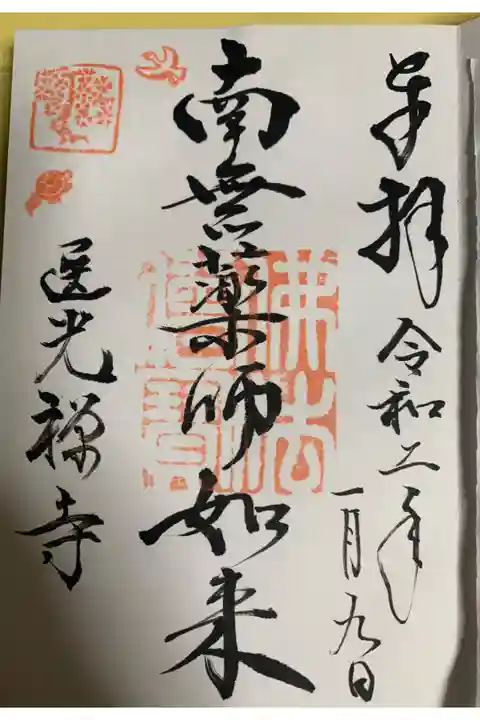 奉拝 令和二年
一月九日
南無薬師如来
佛法僧寶
医光禅寺